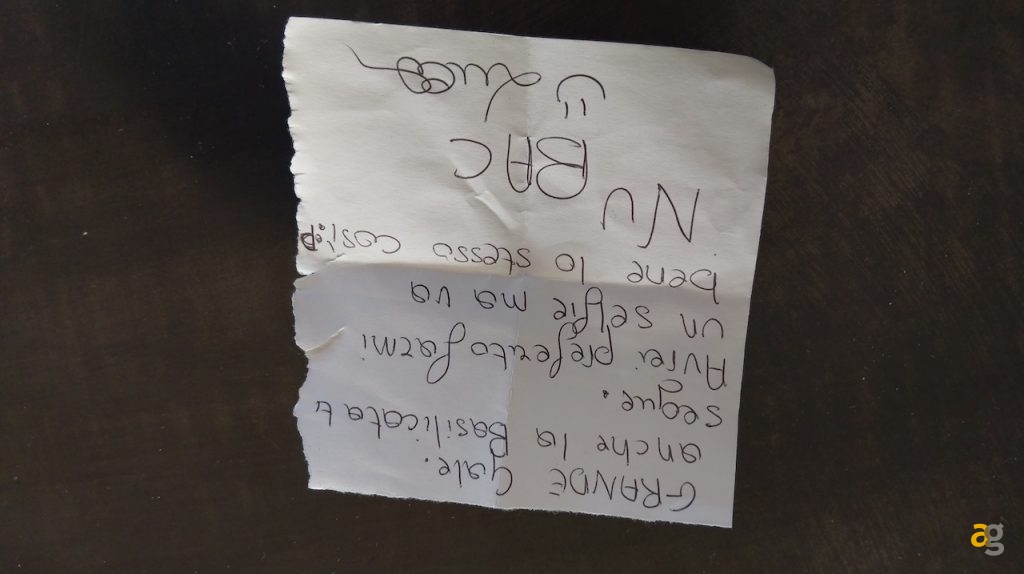 GRANDE Gale.
anche la Basilicata ti
segue.
Avrei preferito farmi
un selfie ma va
bene lo stesso così :P
NU BAC
Luca
ag